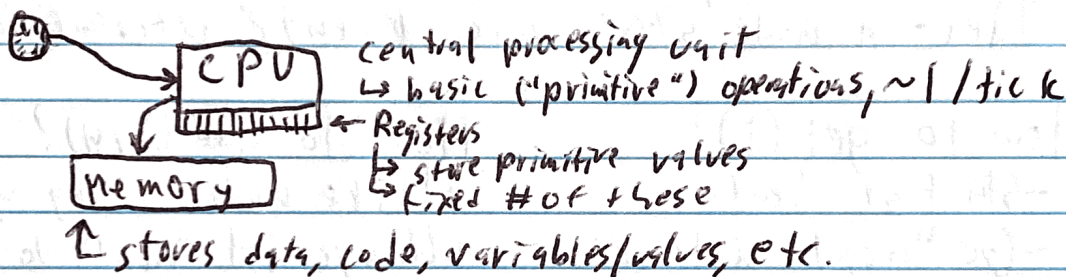 CPU
central processing unit
↳ basic ("primitive") operations, ~1/tick
← Registers
↳ store primitive values
↳ fixed # of these
Memory
stores data, code, variables/values, etc.